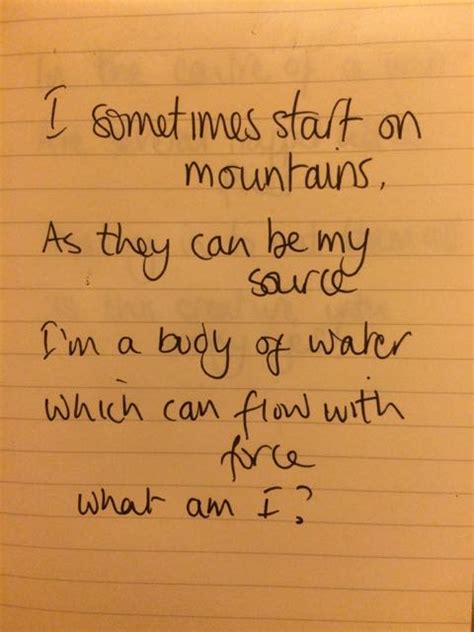 I sometimes start on
mountains,
As they can be my
source
I'm a body of water
which can flow with
force
what am I?